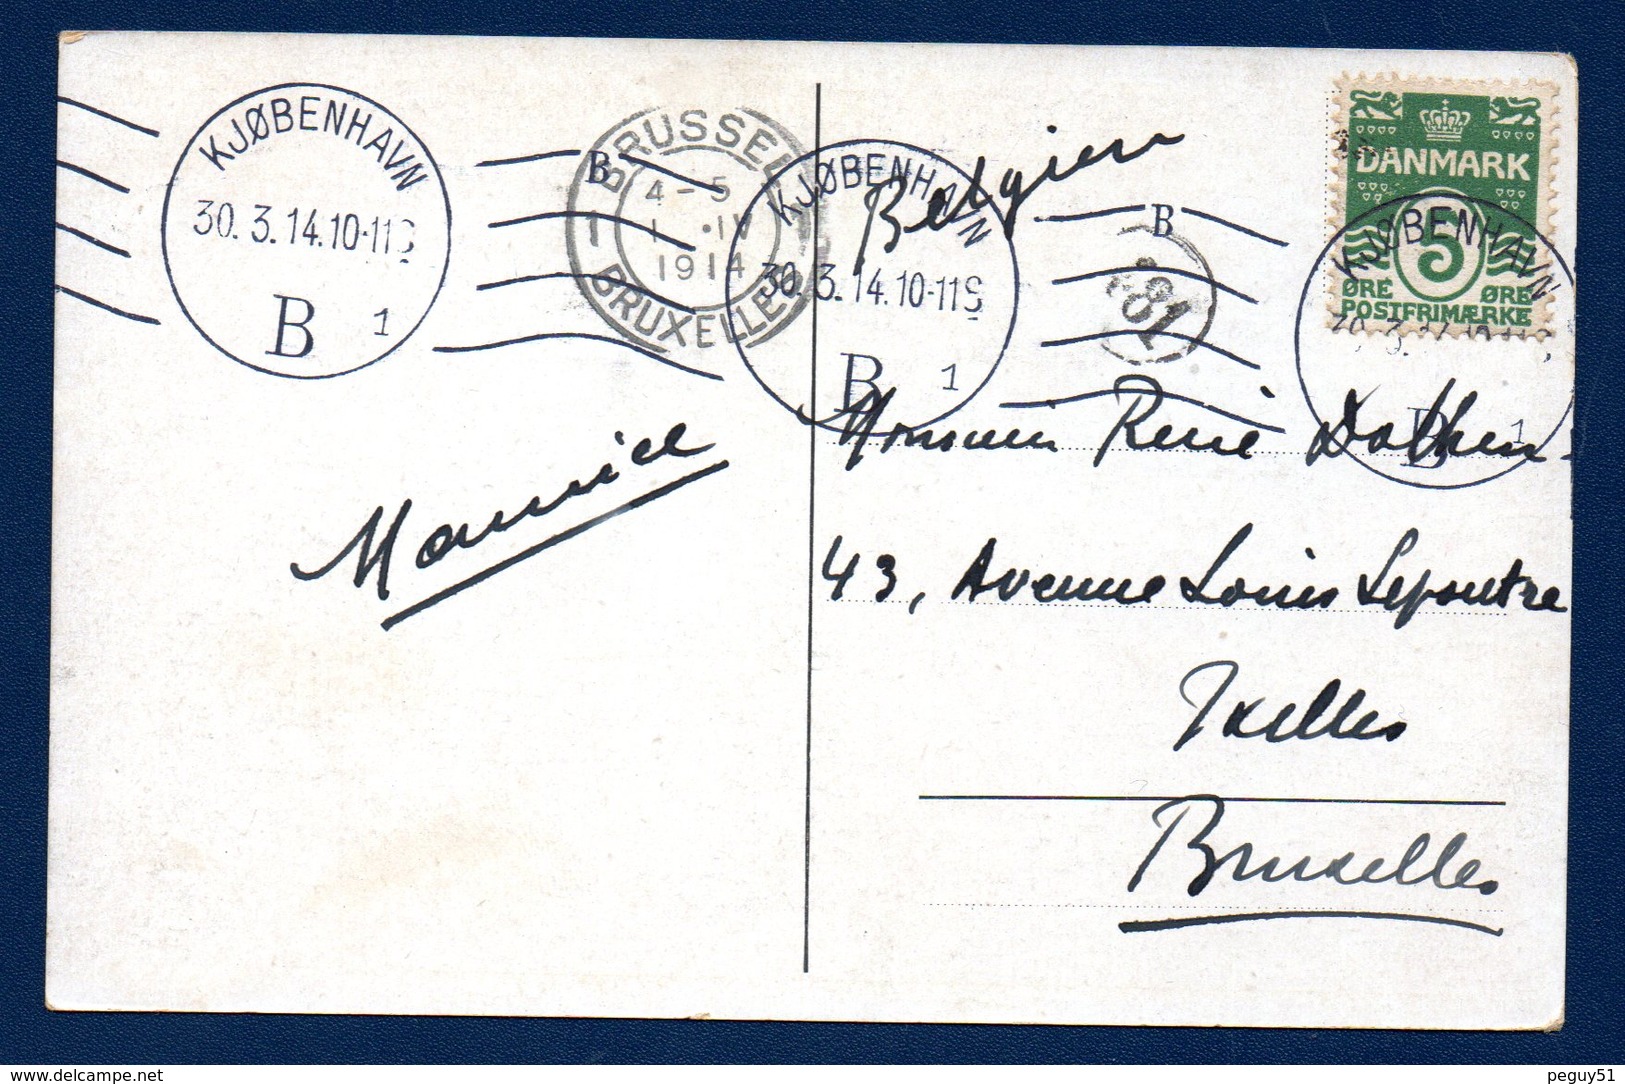 KJØBENHAVN
30.3.14.10-11S
B 1
B
BRUSSEL
4-5
1 .IV
1914
BRUXELLES
1
KJØBENHAVN
30.3.14.10-11S
B 1
B
Belgien
81
DANMARK
5
ØRE ØRE
POSTFRIMÆRKE
KJØBENHAVN
B 1
Maurice
Monsieur René
43, Avenue Louis Lepoutre
Ixelles
Bruxelles
peguy51